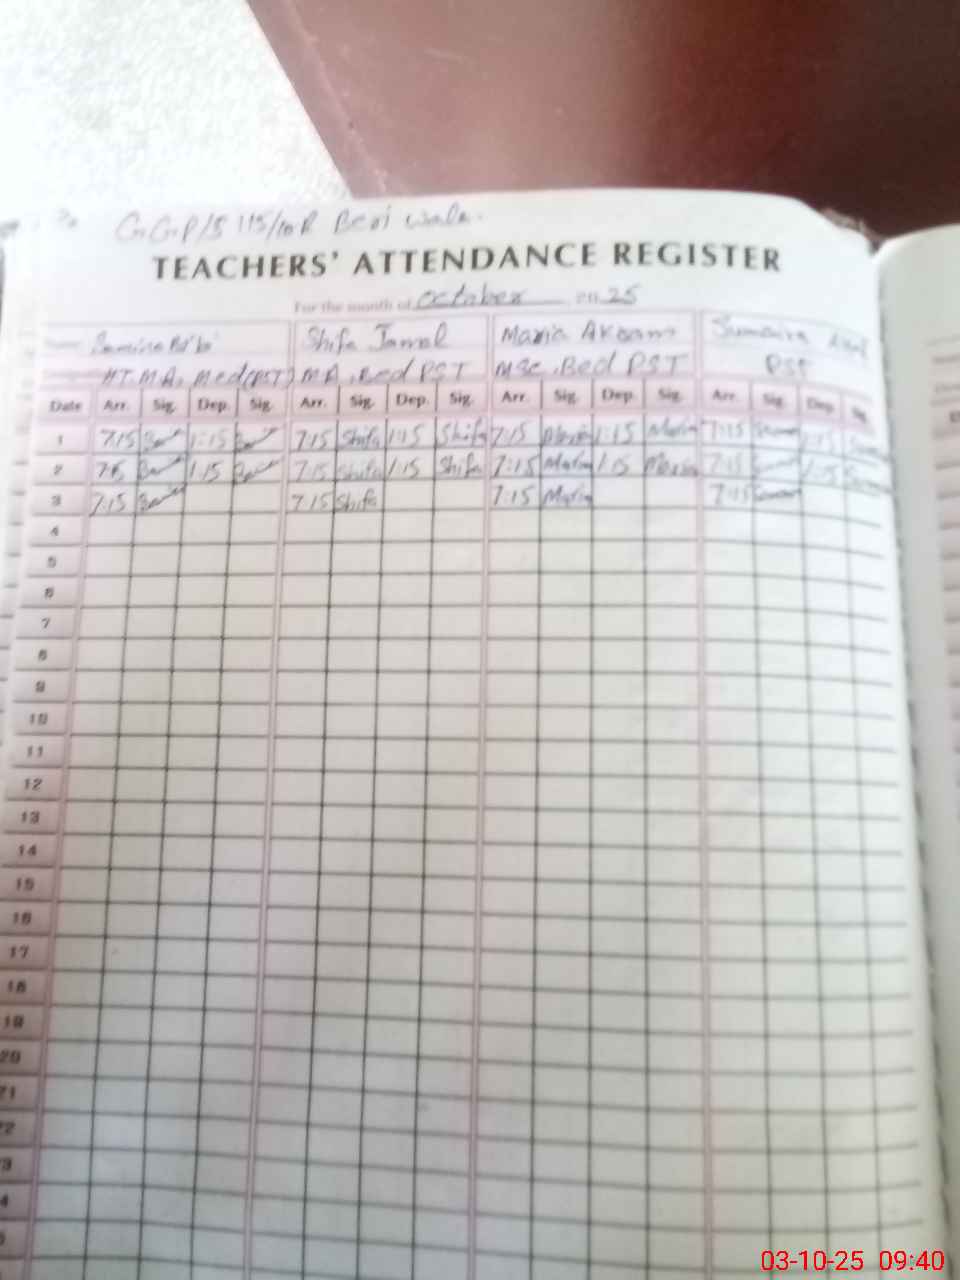 G.G.P/S 115/10R Beri wala.
TEACHERS' ATTENDANCE REGISTER
For the month of October 2025
Samina Bibi Shifa Jamal Maria Akram Sumaira
HT.M.A, Med(PST) M.A, Bed PST MSc, Bed PST PST
Date Arr. Sig. Dep. Sig. Arr. Sig. Dep. Sig. Arr. Sig. Dep. Sig. Arr. Sig. Dep. Sig.
1 7:15 1:15 7:15 Shifa 1:15 Shifa 7:15 Maria 1:15 Maria 7:15 1:15
2 7:15 1:15 7:15 Shifa 1:15 Shifa 7:15 Maria 1:15 Maria 7:15 1:15
3 7:15 7:15 Shifa 7:15 Maria 7:15
4
5
6
7
8
9
10
11
12
13
14
15
16
17
18
19
20
21
22
23
24
03-10-25 09:40